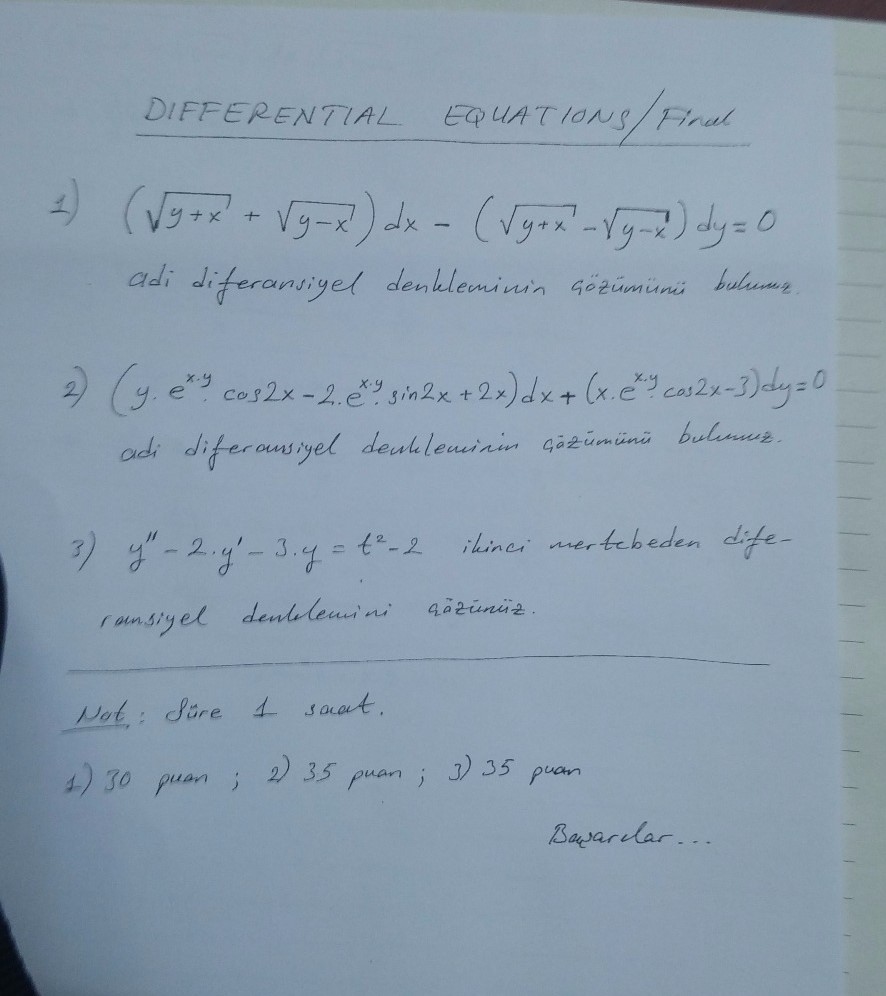 DIFFERENTIAL EQUATIONS/Final
1) (√y+x + √y-x) dx - (√y+x - √y-x) dy = 0
adi diferansiyel denkleminin çözümünü bulunuz.
2) (y. e^x.y. cos2x - 2. e^x.y. sin2x + 2x) dx + (x. e^x.y. cos2x - 3) dy = 0
adi diferansiyel denkleminin çözümünü bulunuz.
3) y'' - 2.y' - 3.y = t² - 2 ikinci mertebeden dife-
ransiyel denklemini çözünüz.
Not: Süre 1 saat.
1) 30 puan ; 2) 35 puan ; 3) 35 puan
Başarılar...